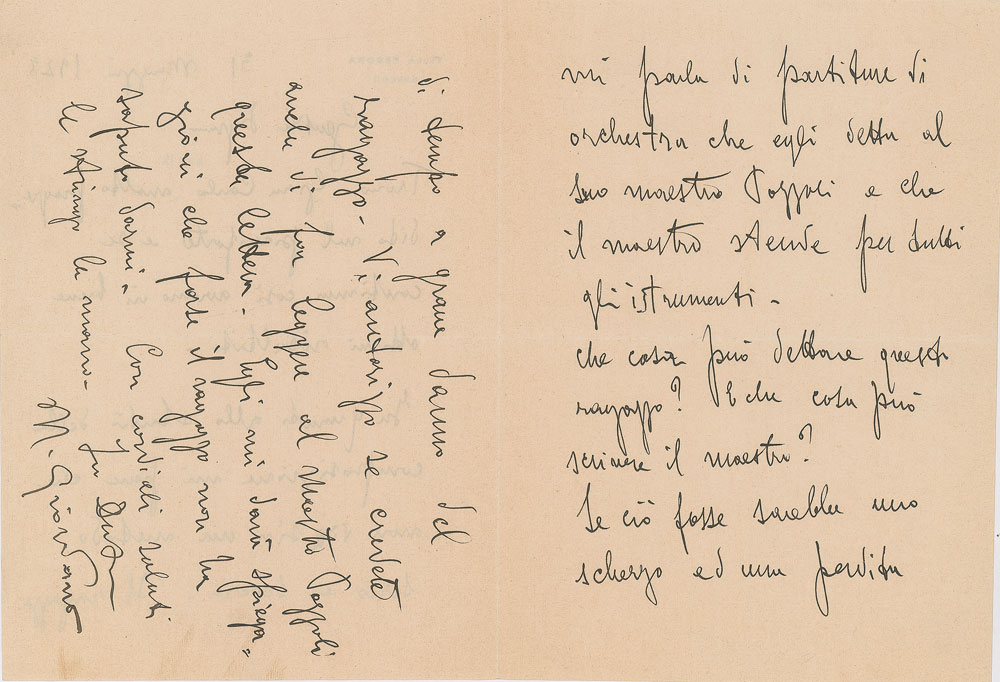 mi parla di partiture di
orchestra che egli detta al
suo maestro Pozzoli e che
il maestro stende per tutti
gl'istrumenti -
che cosa può dettare questo
ragazzo? E che cosa può
scrivere il maestro?
Se ciò fosse sarebbe uno
scherzo ed una perdita
di tempo a grave danno del
ragazzo. Vi autorizzo se credete
anche di far leggere al maestro Pozzoli
questa lettera. Egli mi darà spiega=
zioni che forse il ragazzo non ha
saputo darmi. Con cordiali saluti
le stringo la mano.
Giordano